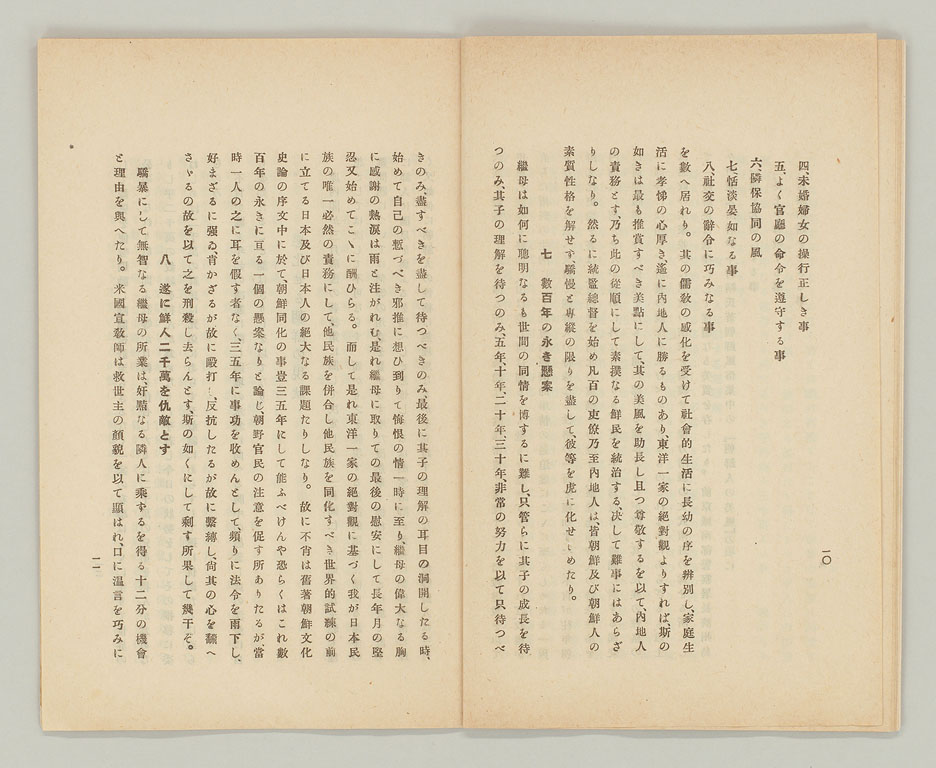 四、未婚婦女の操行正しき事
五、よく官廳の命令を遵守する事
六、隣保協同の風
七恬淡晏如なる事
八、社交の辭令に巧みなる事
を數へ居れり。其の儒教の感化を受けて社會的生活に長幼の序を辨別し、家庭生
活に孝悌の心厚き、遙に内地人に勝るものあり、東洋一家の絕對觀よりすれば、斯の
如きは最も推賞すべき美點にして、其の美風を助長し且つ尊敬するを以て、内地人
の責務とす、乃ち此の從順にして素撲なる鮮民を統治する、决して難事にはあらざ
りしなり。然るに統監總督を始め凡百の吏僚乃至内地人は、皆朝鮮及び朝鮮人の
素質性格を解せず、驕慢と專縱の限りを盡して、彼等を虎に化せしめたり。
七　數百年の永き懸案
繼母は如何に聰明なるも世間の同情を博するに難し、只管らに其子の成長を待
つのみ、其子の理解を待つのみ、五年、十年、二十年、三十年、非常の努力を以て只待つべ
一〇
きのみ、盡すべきを盡して待つべきのみ、最後に其子の理解の耳目の洞開したる時、
始めて自己の慙づべき邪推に想ひ到りて悔恨の情一時に至り、繼母の偉大なる胸
に感謝の熱淚は雨と注がれむ、是れ繼母に取りての最後の慰安にして長年月の堅
忍又始めてこゝに酬ひらる。而して是れ東洋一家の絕對觀に基づく我が日本民
族の唯一必然の責務にして、他民族を併合し他民族を同化すべき世界的試練の前
に立てる日本及び日本人の絕大なる課題たりしなり。故に不肖は舊著朝鮮文化
史論の序文中に於て、朝鮮同化の事豈三五年にして能ふべけんや恐らくはこれ數
百年の永きに亘る一個の懸案なりと論じ、朝野官民の注意を促す所ありたるが當
時一人の之に耳を假す者なく、三五年に事功を收めんとして、頻りに法令を雨下し、
好まざるに强ゐ肯かざるが故に毆打し、反抗したるが故に繫縛し、尙其の心を飜へ
さゞるの故を以て之を刑殺し去らんとす、斯の如くにして剩す所果して幾干ぞ。
八　遂に鮮人二千萬を仇敵とす
驕暴にして無智なる繼母の所業は、奸黠なる隣人に乘ずるを得る十二分の機會
と理由を與へたり。米國宣敎師は救世主の顏貌を以て顯はれ、口に溫言を巧みに
一一